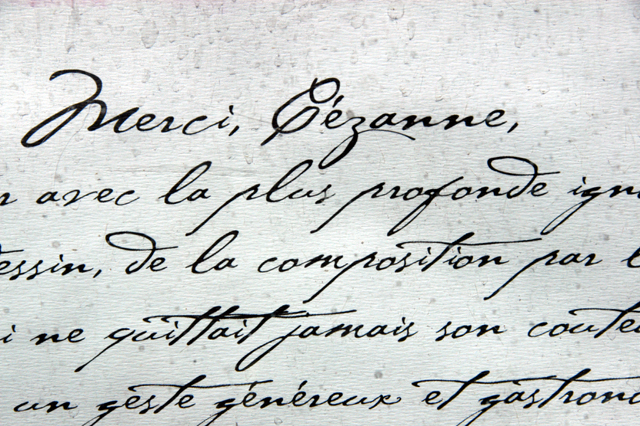 Merci, Cézanne,
r avec la plus profonde ign
essin, de la composition par l
i ne quittait jamais son coute
un geste généreux et gastron